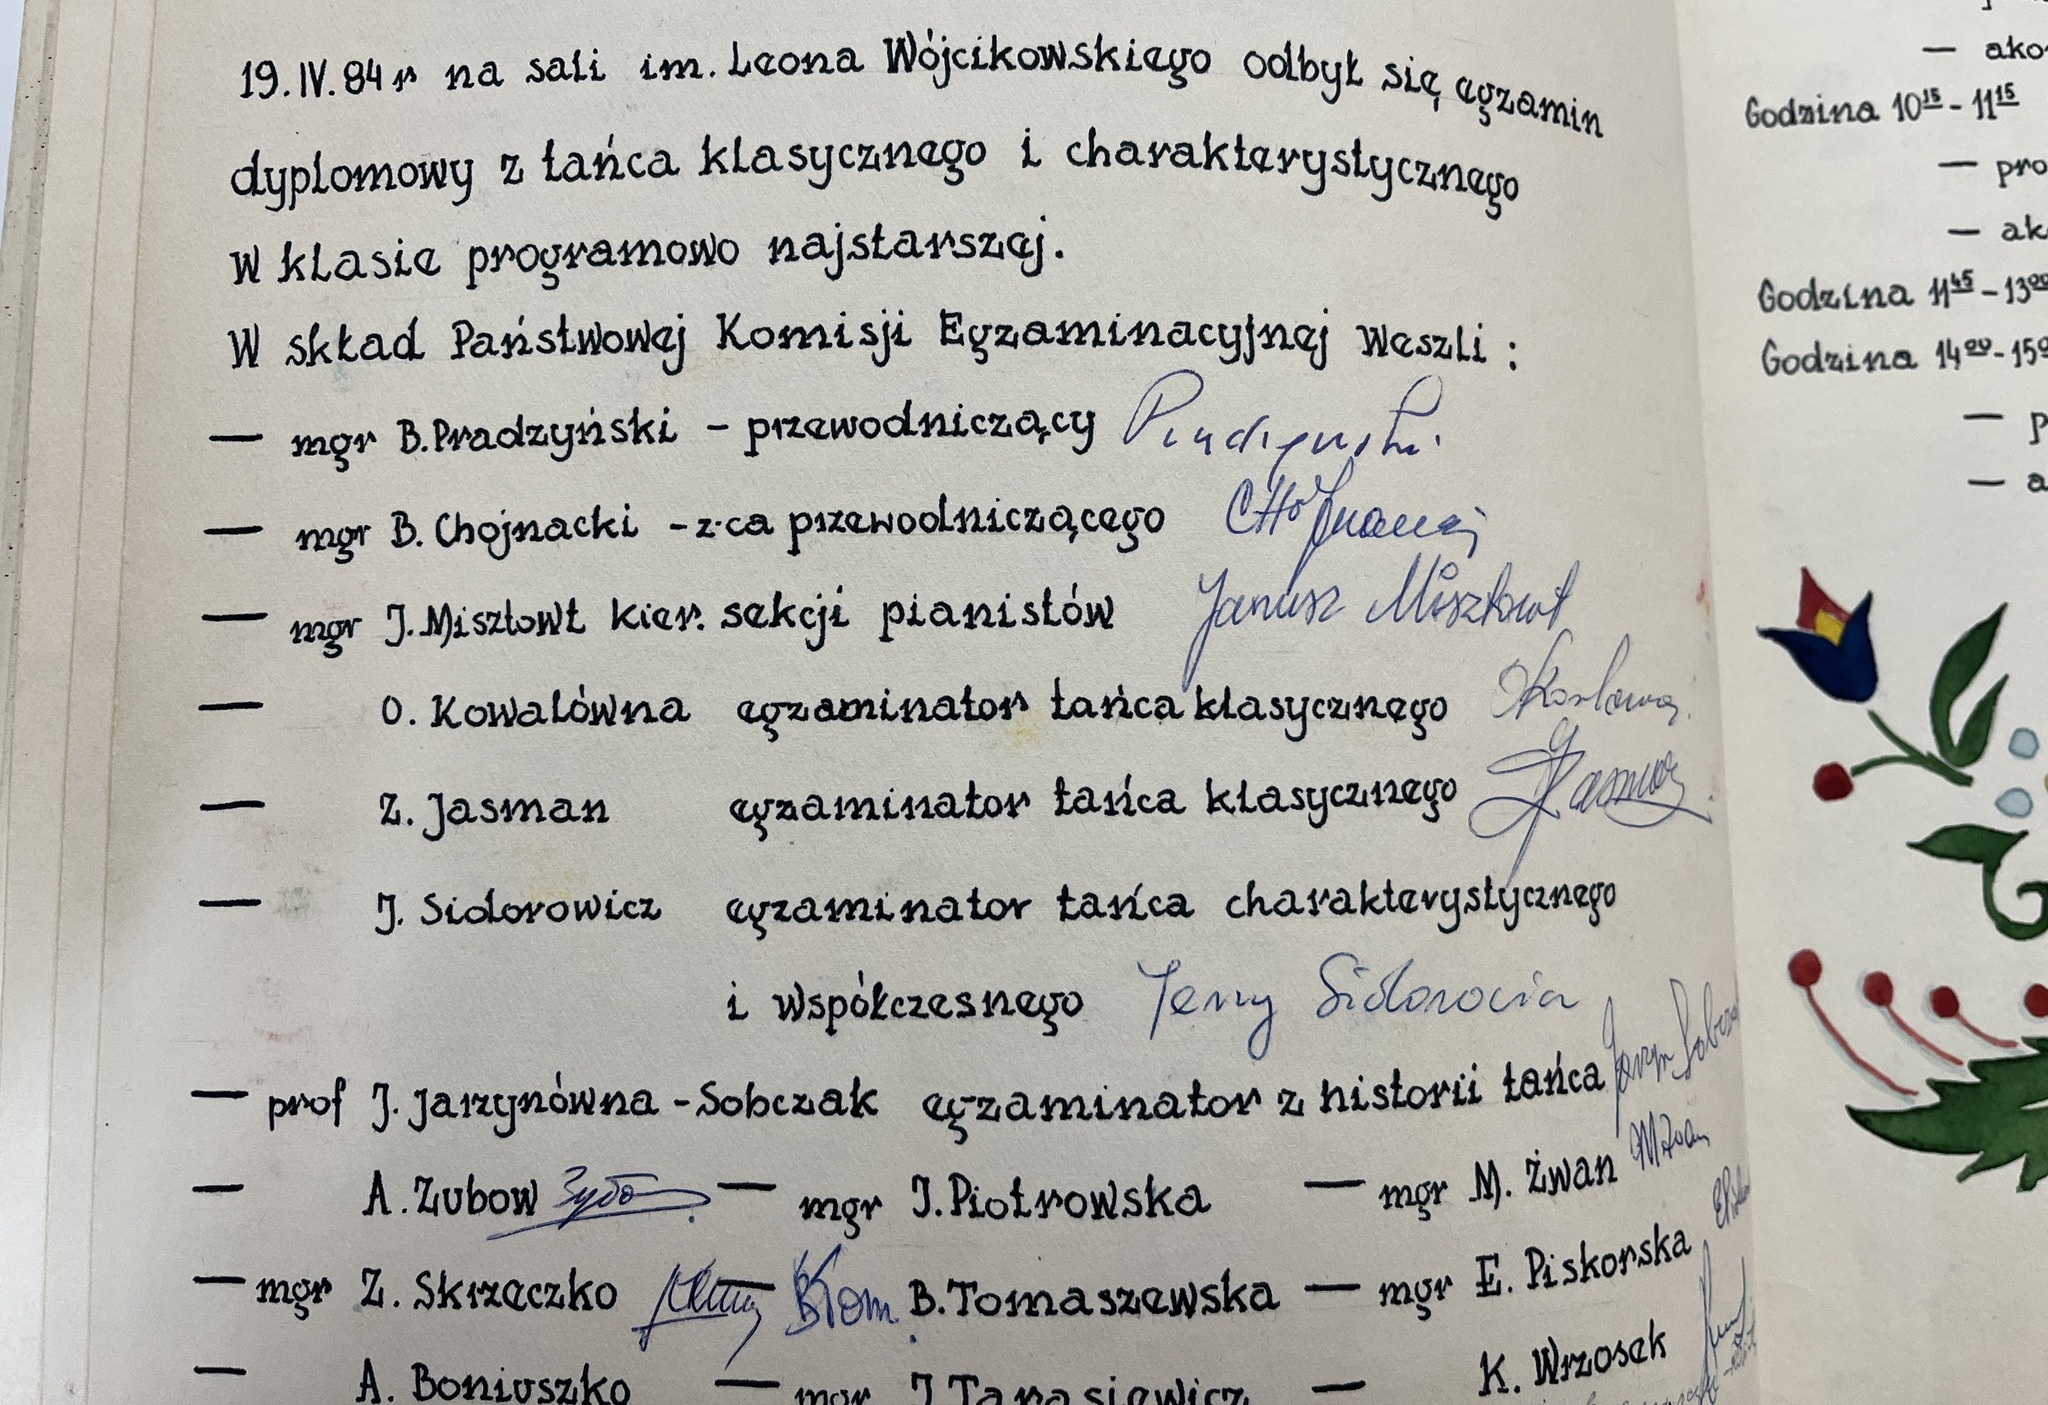 19. IV. 84 r na sali im. Leona Wójcikowskiego odbył się egzamin
dyplomowy z tańca klasycznego i charakterystycznego
w klasie programowo najstarszej.
W skład Państwowej Komisji Egzaminacyjnej weszli :
— mgr B. Pradzyński – przewodniczący
— mgr B. Chojnacki – z-ca przewodniczącego
— mgr J. Misztowt kier. sekcji pianistów Janusz Misztowt
— O. Kowalówna egzaminator tańca klasycznego
— Z. Jasman egzaminator tańca klasycznego
— J. Sidorowicz egzaminator tańca charakterystycznego
i współczesnego Jerzy Sidorowicz
— prof J. Jarzynówna - Sobczak egzaminator z historii tańca
— A. Zubow — mgr J. Piotrowska — mgr M. Żwan
— mgr Z. Skrzeczko — B. Tomaszewska — mgr E. Piskorska
— A. Boniuszko — mgr J. Tarasiewicz — K. Wrzosek
— ako
Godzina 10¹⁵ - 11¹⁵
— pro
— ak
Godzina 11⁴⁵ - 13⁰⁰
Godzina 14⁰⁰ - 15⁰
— p
— a